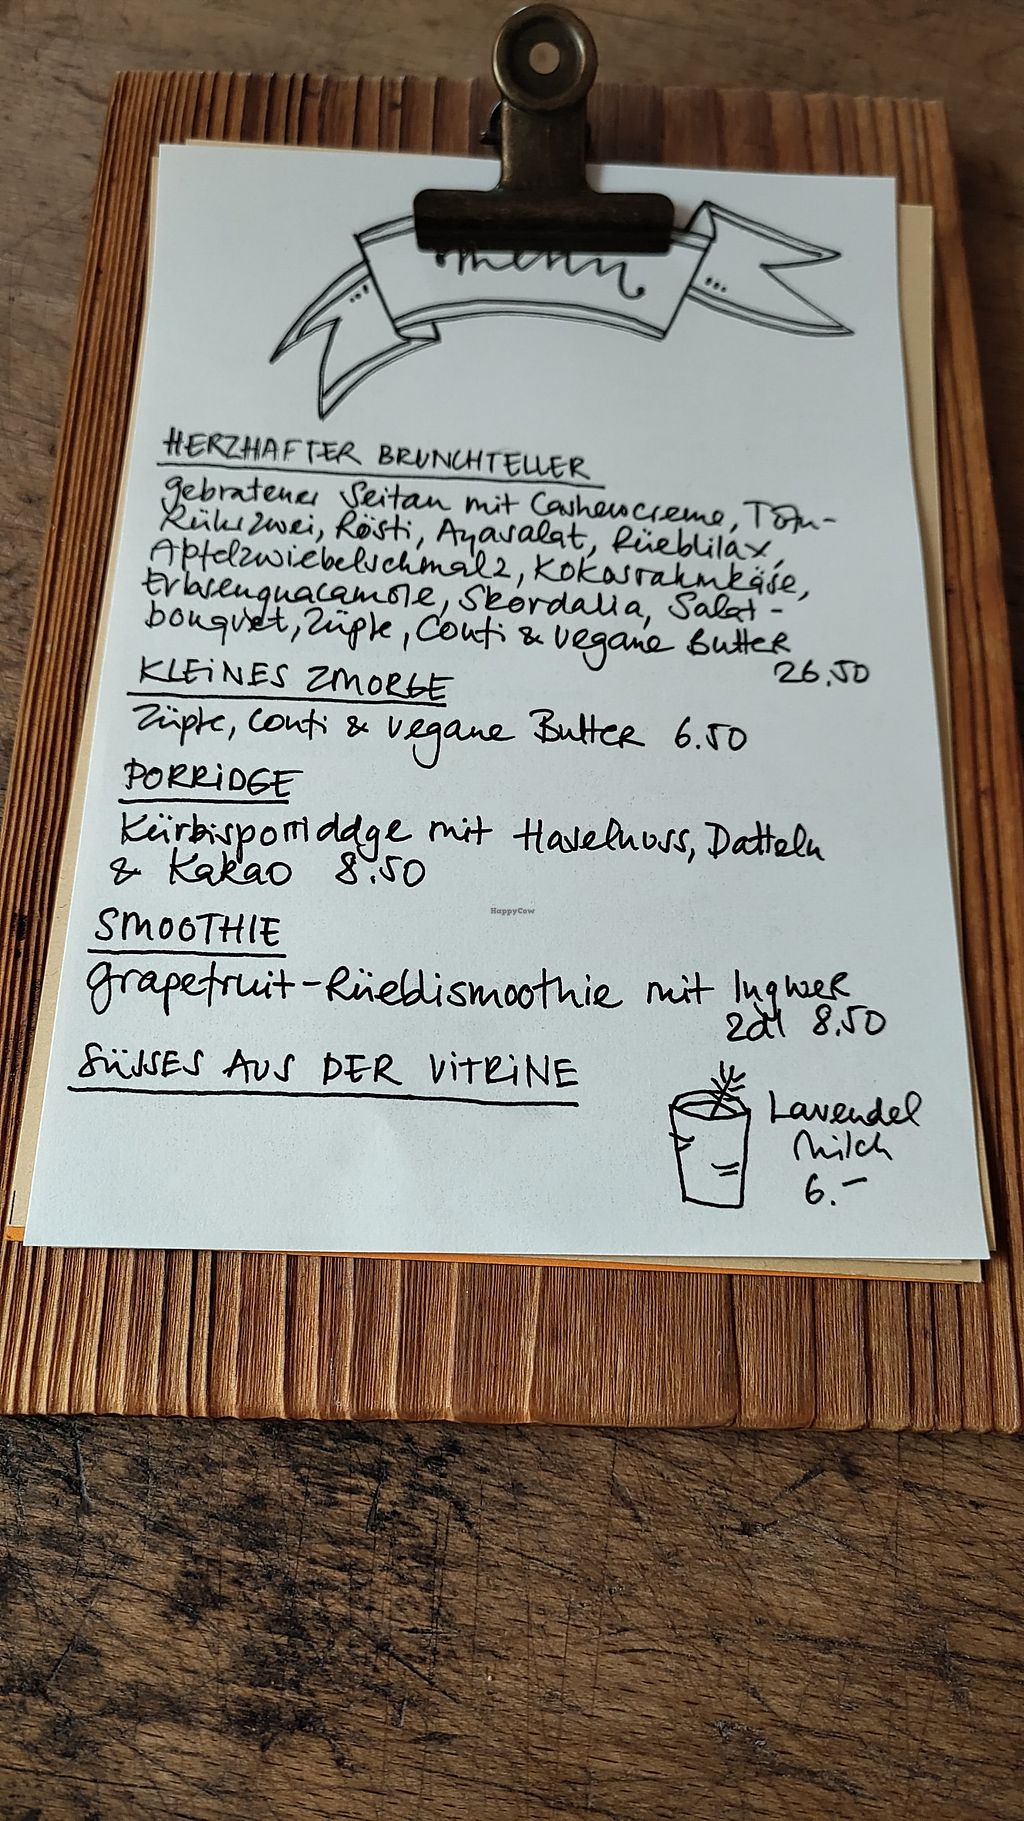 menu
HERZHAFTER BRUNCHTELLER
gebratener Seitan mit Cashewcreme, Tofu-
Rührzwei, Rösti, Ayasalat, Rüeblilax,
Apfelzwiebelschmalz, Kokosrahmkäse,
Erbsenguacamole, Skordalia, Salat-
bouquet, Züpfe, Confi & vegane Butter
26.50
KLEINES ZMORGE
Züpfe, Confi & vegane Butter 6.50
PORRIDGE
Kürbisporriddge mit Haselnuss, Datteln
& Kakao 8.50
HappyCow
SMOOTHIE
Grapefruit-Rüeblismoothie mit Ingwer
2dl 8.50
SÜSSES AUS DER VITRINE
Lavendel
Milch
6.–